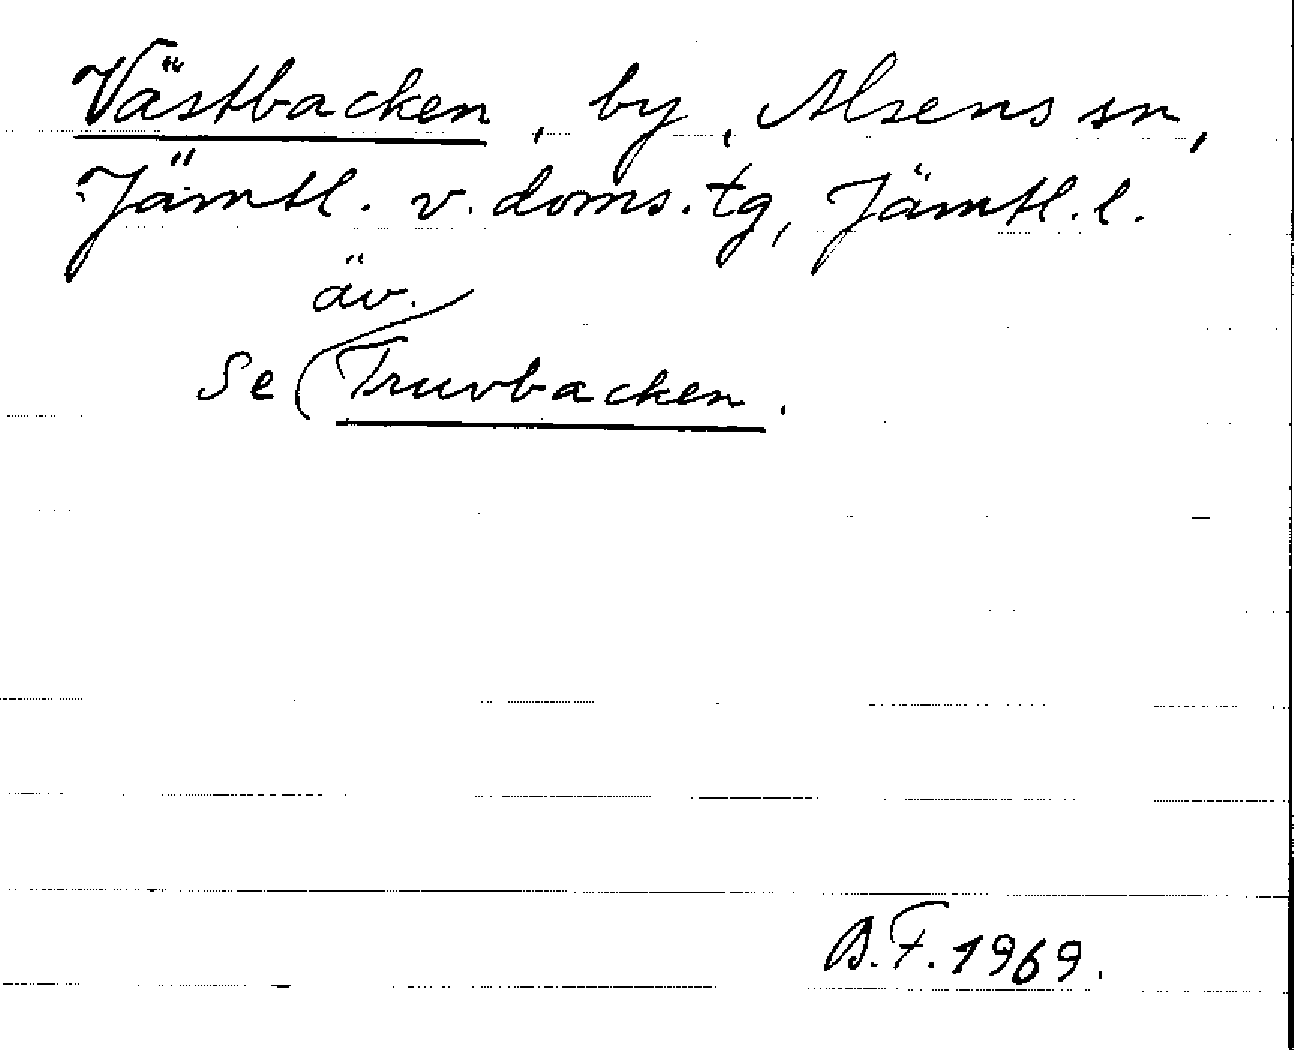 Västbacken, by, Alsens sn,
Jämtl. v. doms. tg, Jämtl. l.
äv.
Se Truvbacken.
B.F. 1969.